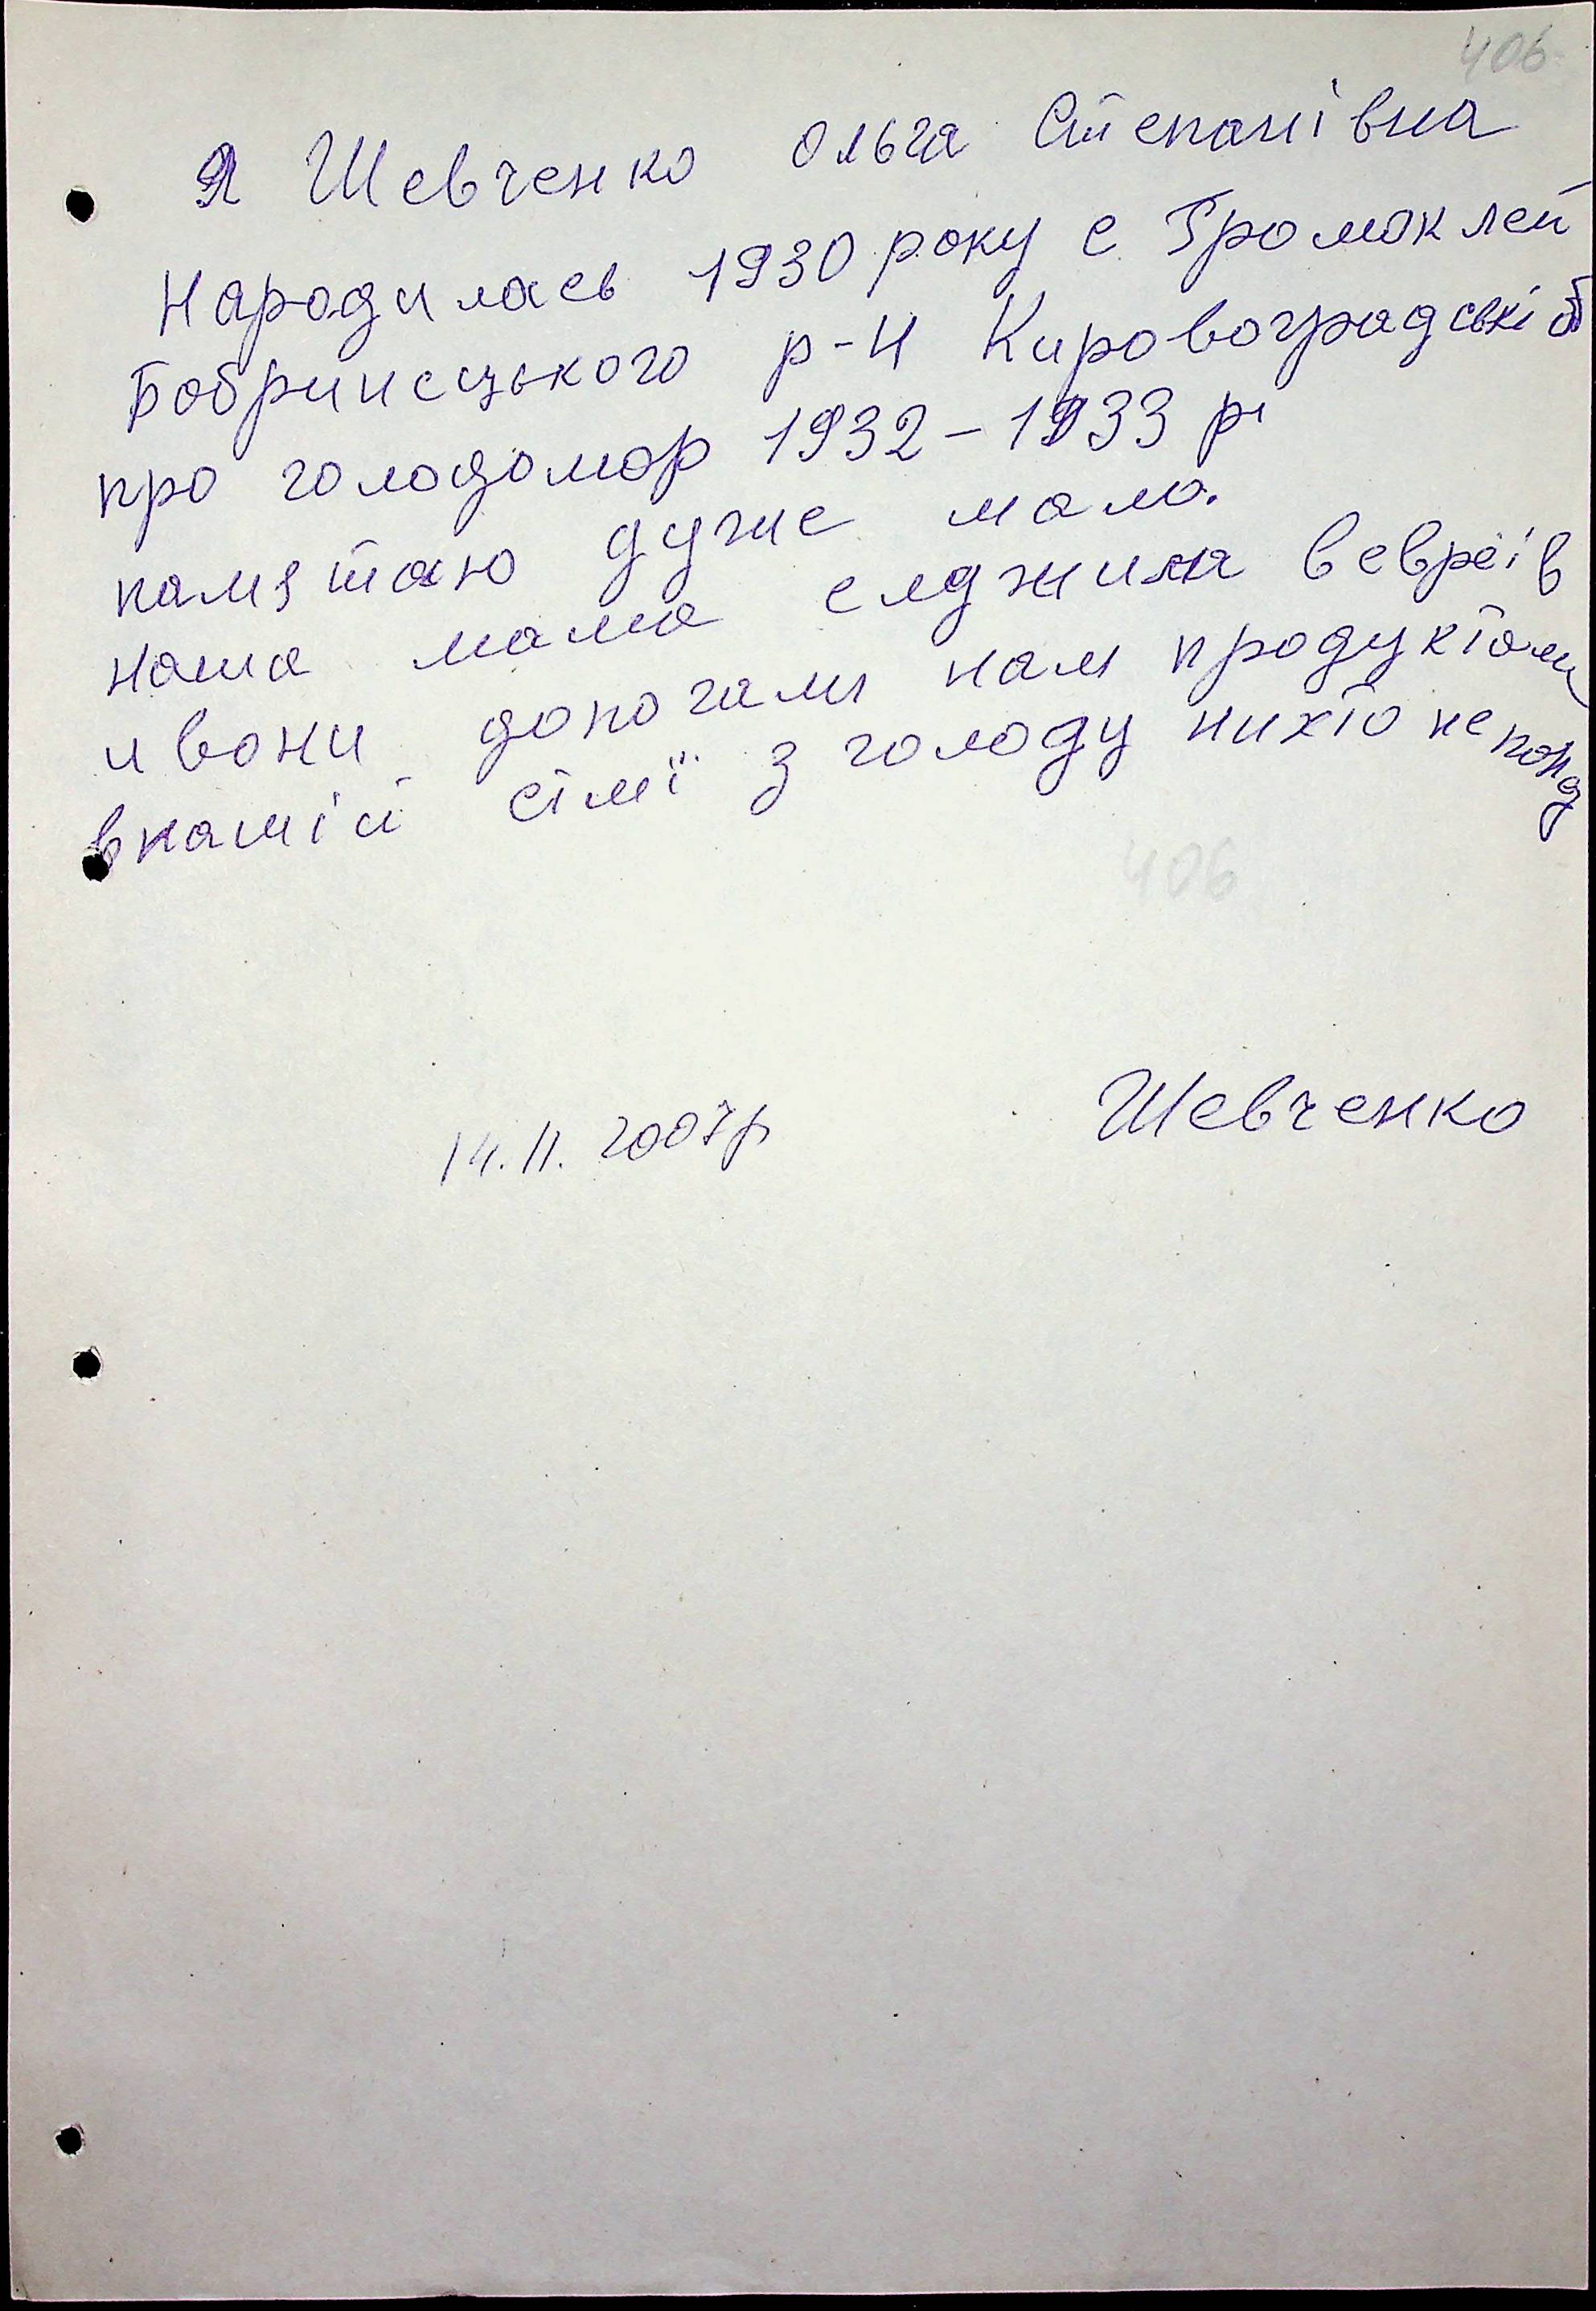 406
Я Шевченко Ольга Степанівна
Народилась 1930 року с Громоклей
Бобринецького р-н Кировоградські об
про голодомор 1932-1933 р.
памятаю дуже мало.
наша мама служила в евреїв
и вони допогали нам продуктами
в нашій сімї з голоду нихто не
406
14.11.2007р Шевченко